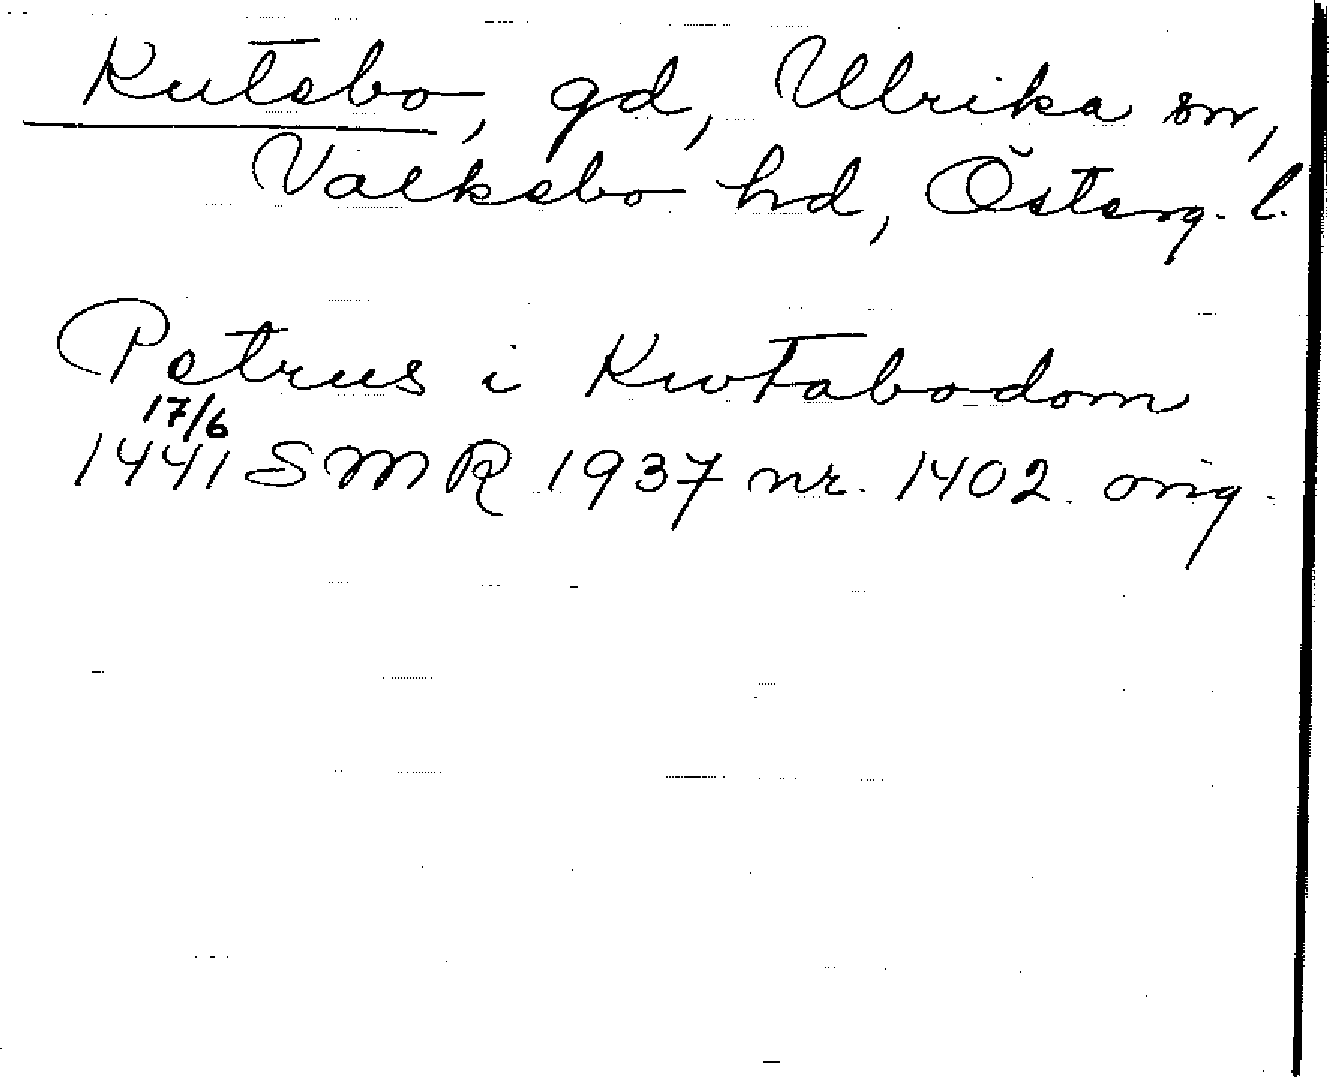 Kutebo, gd, Ulrika sn,
Valkebo hd, Österg. l.
Petrus i Kwtabodom
17/6
1441 SMR 1937 nr. 1402 orig.